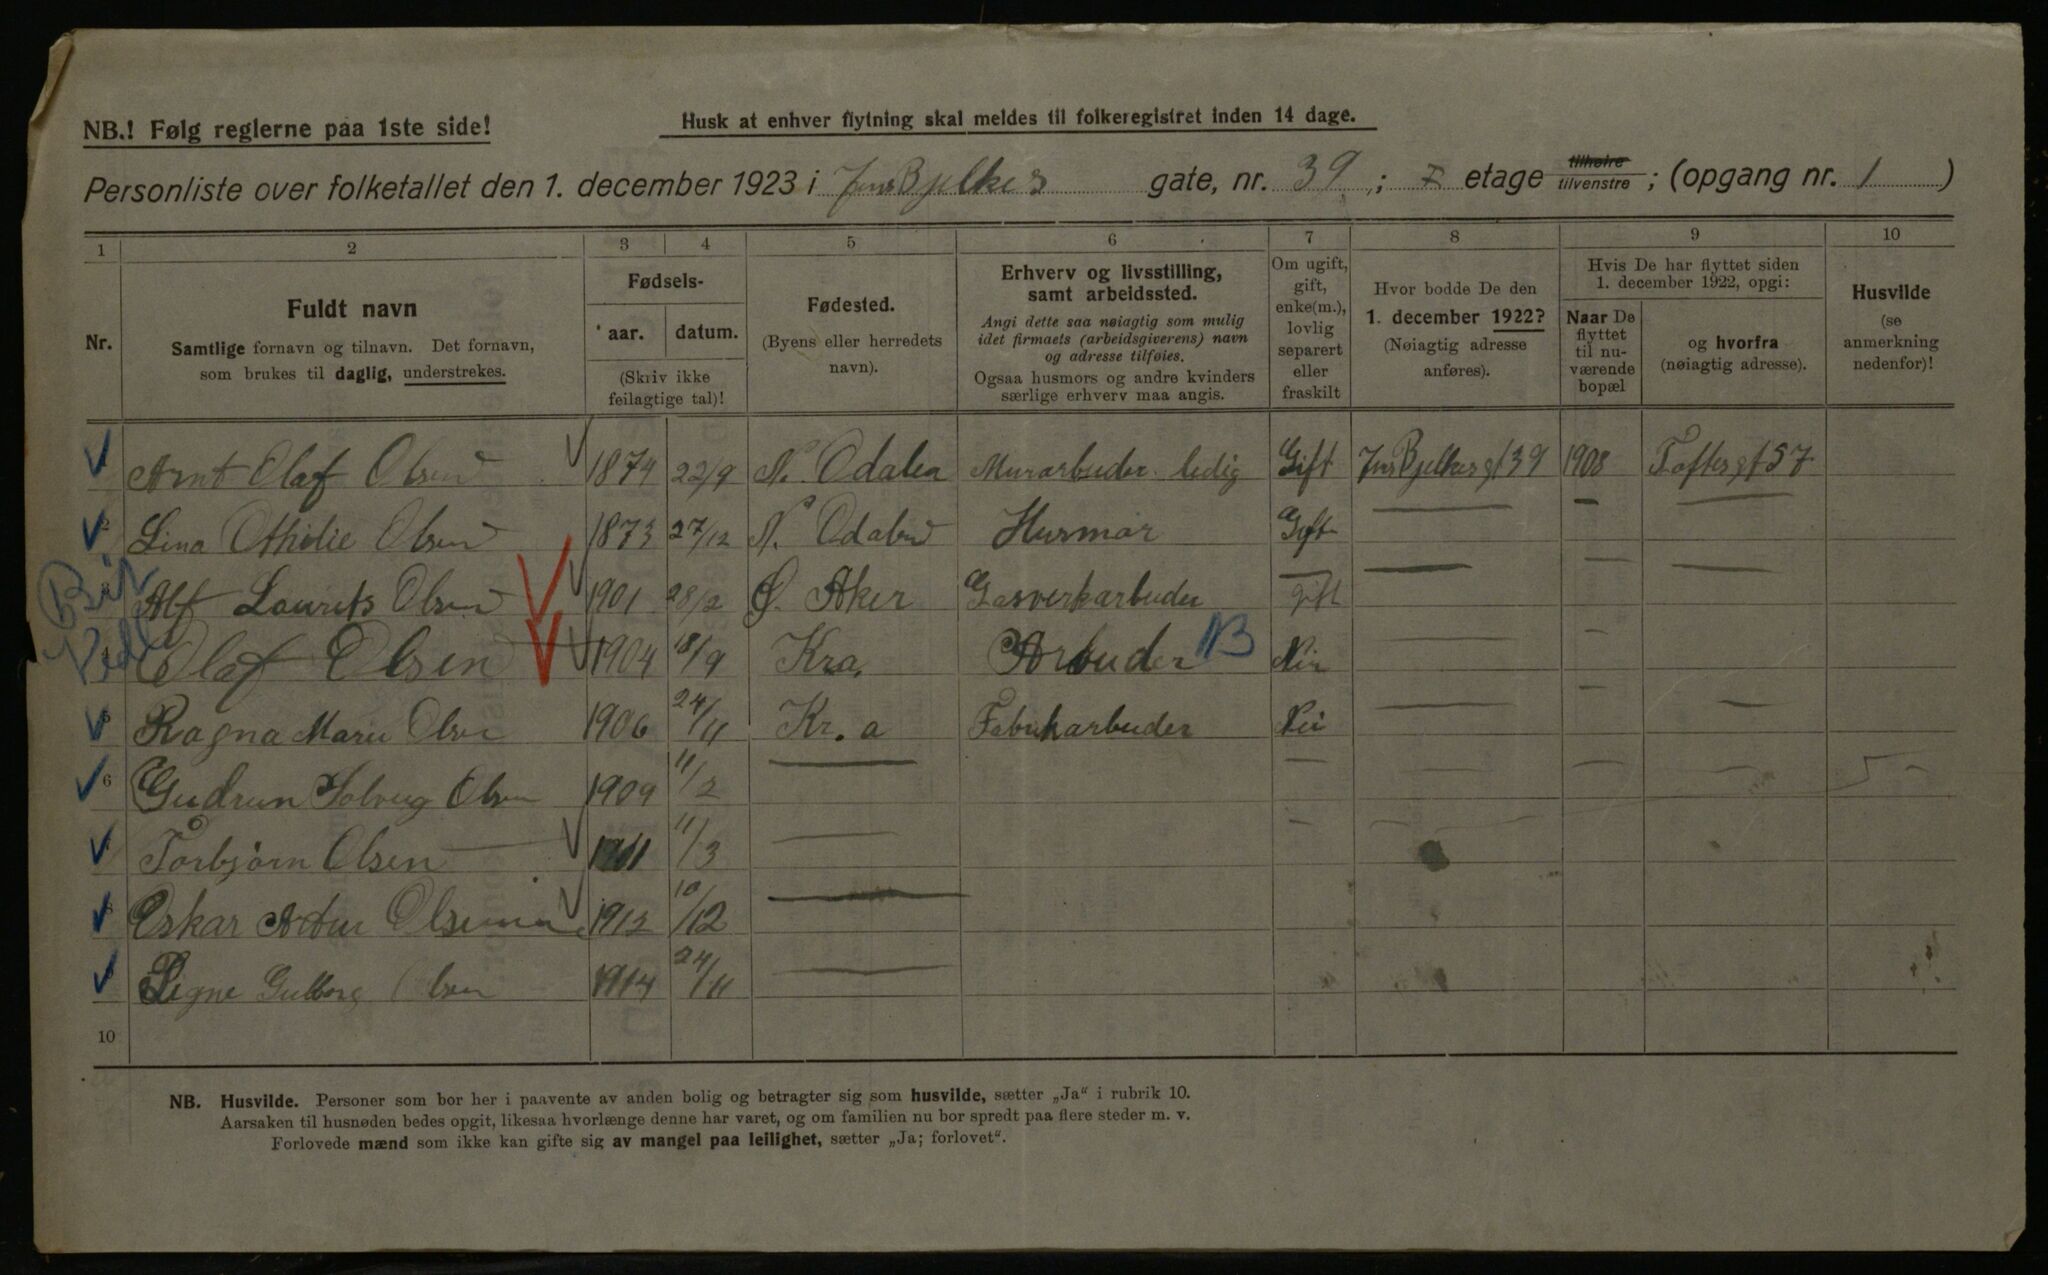 NB.! Følg reglerne paa 1ste side!
Husk at enhver flytning skal meldes til folkeregistret inden 14 dage.
Personliste over folketallet den 1. december 1923 i Jens Bjelkes gate, nr. 39; etage tilhøire tilvenstre; (opgang nr. 1)
1 2 3 4 5 6 7 8 9 10
Nr.
Fuldt navn
Samtlige fornavn og tilnavn. Det fornavn,
som brukes til daglig, understrekes.
Fødsels-
aar. datum.
(Skriv ikke
feilagtige tal)!
Fødested.
(Byens eller herredets
navn).
Erhverv og livsstilling,
samt arbeidssted.
Angi dette saa nøiagtig som mulig
idet firmaets (arbeidsgiverens) navn
og adresse tilføies.
Ogsaa husmors og andre kvinders
særlige erhverv maa angis.
Om ugift,
gift,
enke(m.),
lovlig
separert
eller
fraskilt
Hvor bodde De den
1. december 1922?
(Nøiagtig adresse
anføres).
Hvis De har flyttet siden
1. december 1922, opgi:
Naar De
flyttet
til nu-
værende
bopæl
og hvorfra
(nøiagtig adresse).
Husvilde
(se
anmerkning
nedenfor)!
Arnt Olaf Olsen 1874 22/9 N. Odalen Murarbeider ledig Gift Jens Bjelkes gt 39 1908 Toftes gt 57
2 Lina Othilie Olsen 1873 27/12 N. Odalen Husmor Gift — — —
3 Alf Laurits Olsen 1901 28/2 Ø. Aker Gasverkarbeider gift — — —
Olaf Olsen 1904 18/9 Kra. Arbeider NB Nei — — —
5 Ragna Marie Olsen 1906 24/11 Kr.a Fabrikarbeider Nei — — —
6 Gudrun Solveig Olsen 1909 11/2 — — — — —
Torbjørn Olsen 1911 11/3 —
8 Oskar Olsen 1912 10/12 —
Signe Gulborg Olsen 1914 24/11 —
10
NB. Husvilde. Personer som bor her i paavente av anden bolig og betragter sig som husvilde, sætter „Ja“ i rubrik 10.
Aarsaken til husnøden bedes opgit, likesaa hvorlænge denne har varet, og om familien nu bor spredt paa flere steder m. v.
Forlovede mænd som ikke kan gifte sig av mangel paa leilighet, sætter „Ja; forlovet“.